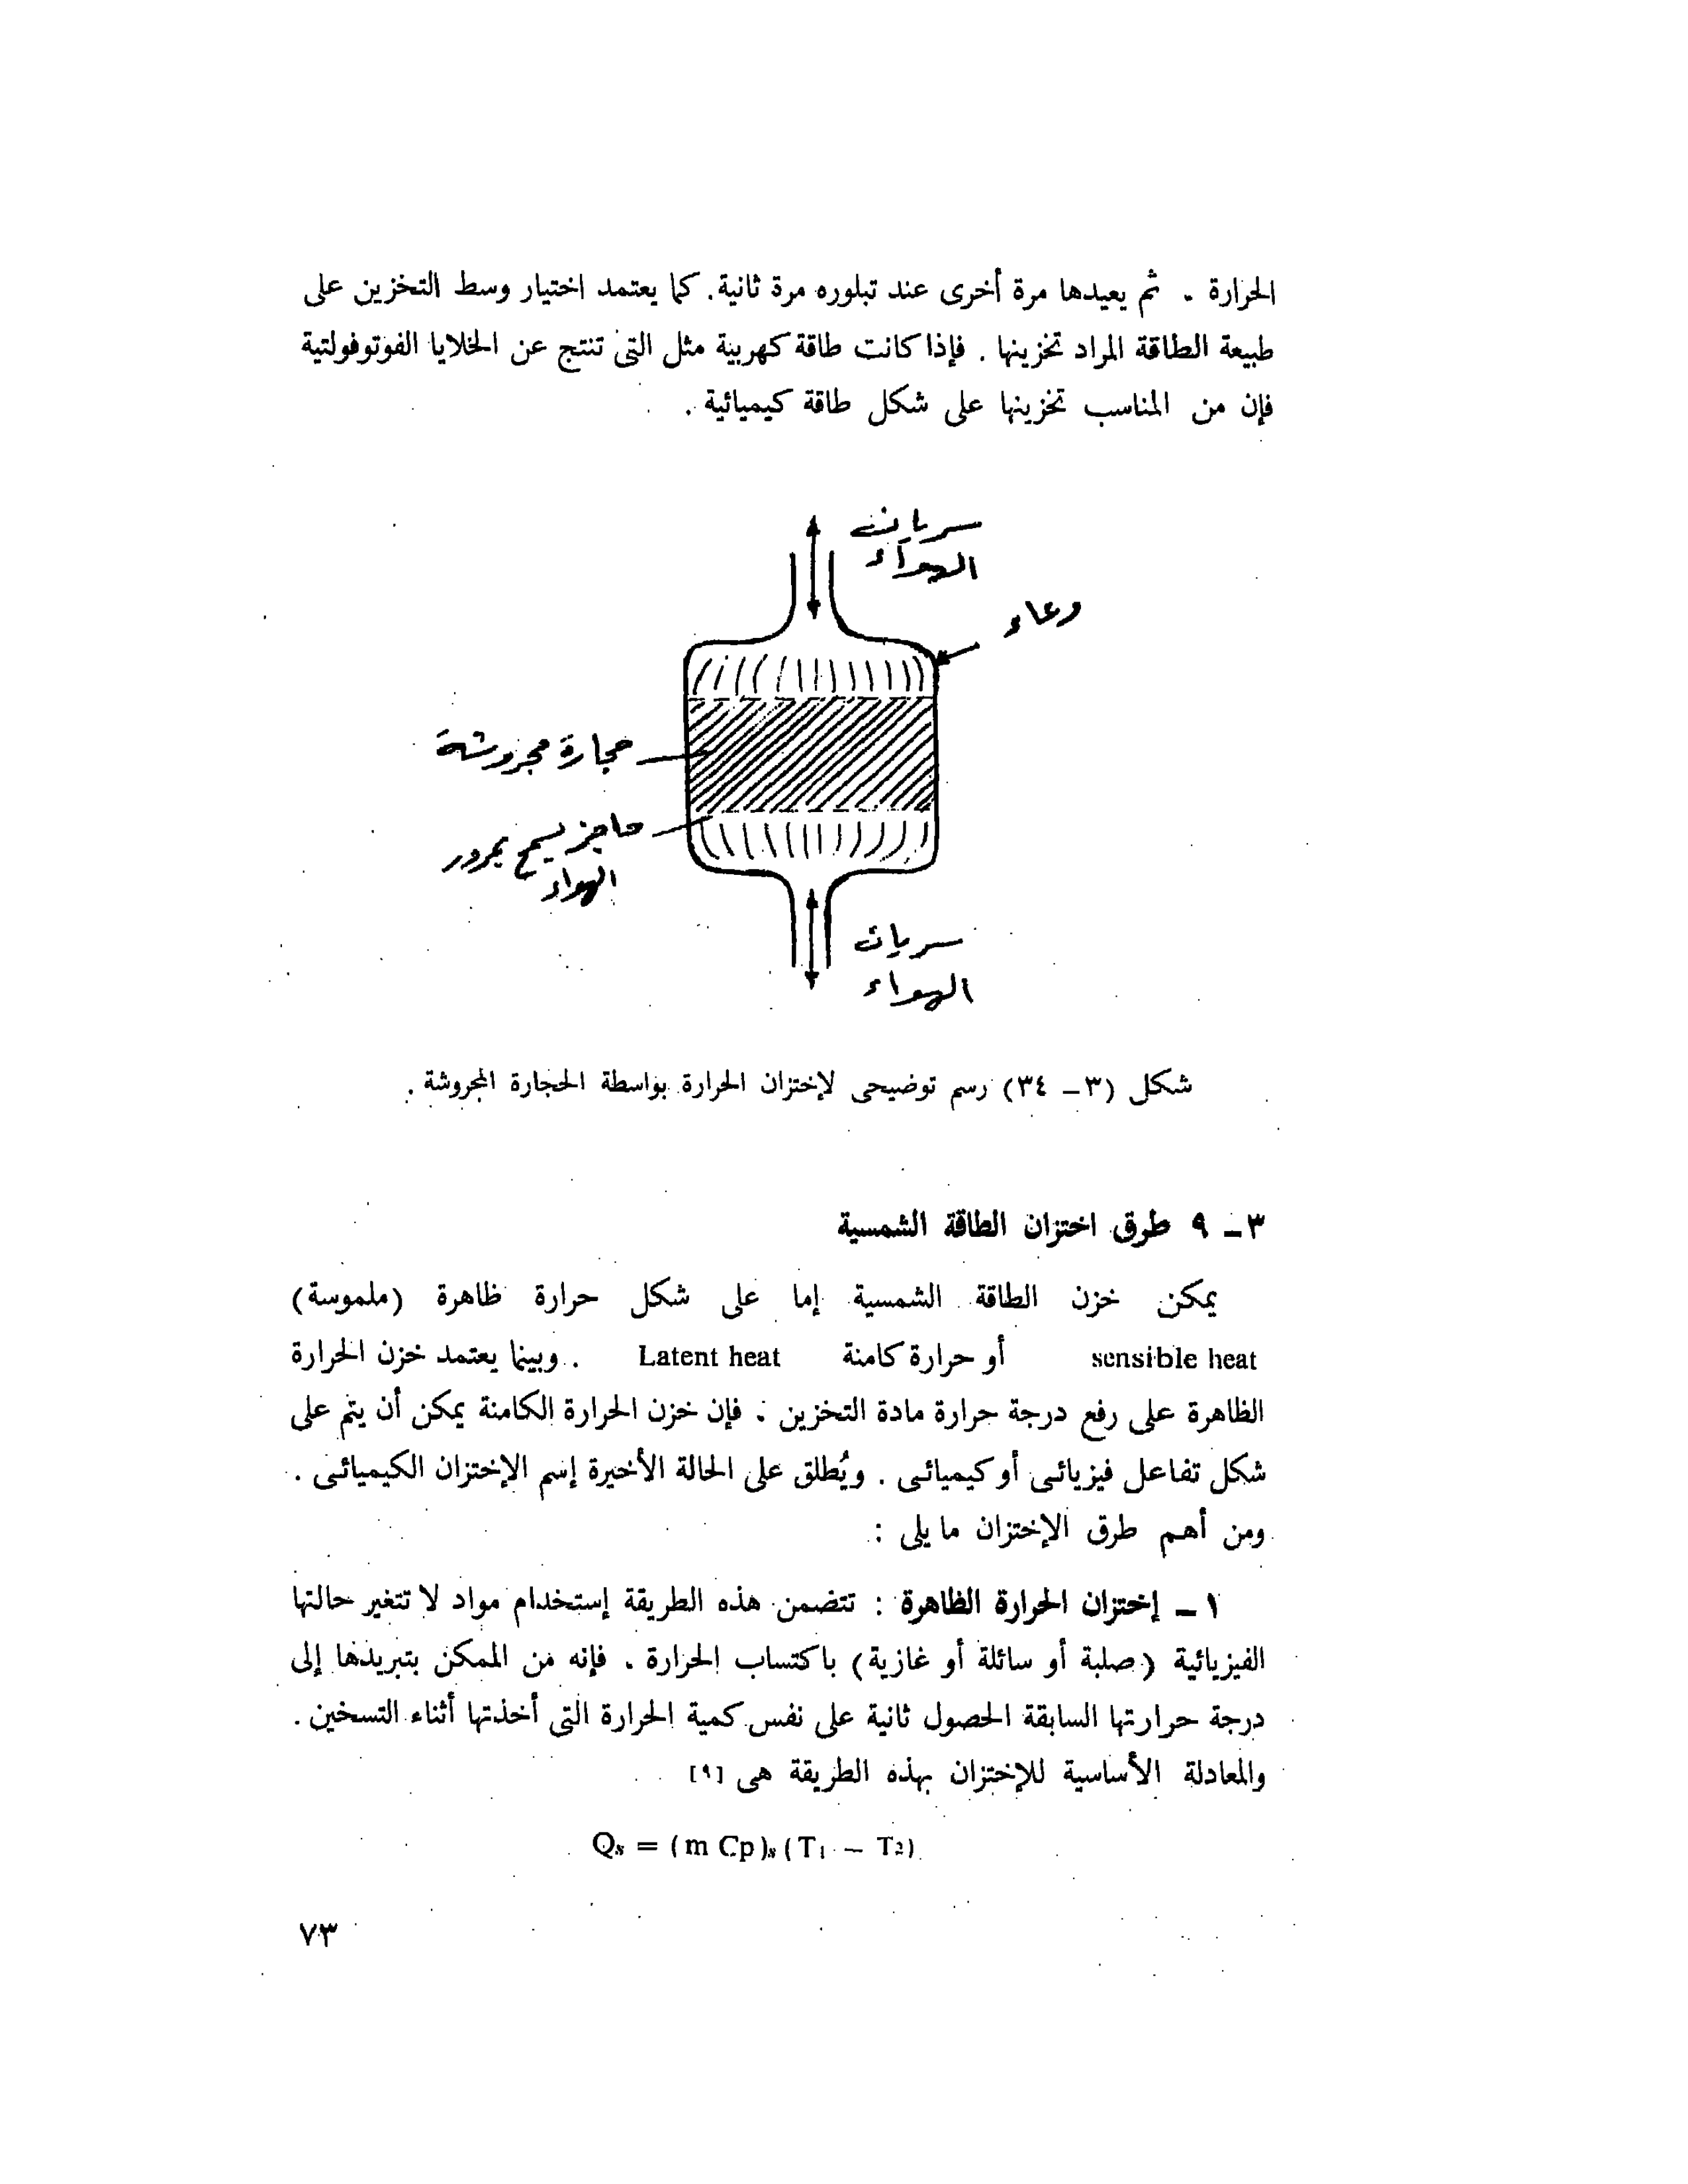 الحرارة . ثم يعيدها مرة أخرى عند تبلوره مرة ثانية. كما يعتمد اختيار وسط التخزين على
طبيعة الطاقة المراد تخزينها . فإذا كانت طاقة كهربية مثل التى تنتج عن الخلايا الفوتوفولتية
فإن من المناسب تخزينها على شكل طاقة كيميائية .
سريان
الهواء
وعاء
حجارة مجروشة
حاجز يسمح بمرور
الهواء
سريان
الهواء
شكل (٣ – ٣٤) رسم توضيحى لإختزان الحرارة بواسطة الحجارة المجروشة .
٣ – ٩ طرق اختزان الطاقة الشمسية
يمكن خزن الطاقة الشمسية إما على شكل حرارة ظاهرة (ملموسة)
sensible heat أو حرارة كامنة Latent heat . وبينما يعتمد خزن الحرارة
الظاهرة على رفع درجة حرارة مادة التخزين . فإن خزن الحرارة الكامنة يمكن أن يتم على
شكل تفاعل فيزيائى أو كيميائى . ويُطلق على الحالة الأخيرة إسم الإختزان الكيميائى .
ومن أهم طرق الإختزان ما يلى :
١ – إختزان الحرارة الظاهرة : تتضمن هذه الطريقة إستخدام مواد لا تتغير حالتها
الفيزيائية (صلبة أو سائلة أو غازية) باكتساب الحرارة . فإنه من الممكن بتبريدها إلى
درجة حرارتها السابقة الحصول ثانية على نفس كمية الحرارة التى أخذتها أثناء التسخين .
والمعادلة الأساسية للإختزان بهذه الطريقة هى [٩]
Qs = (m Cp)s (T1 – T2)
٧٣